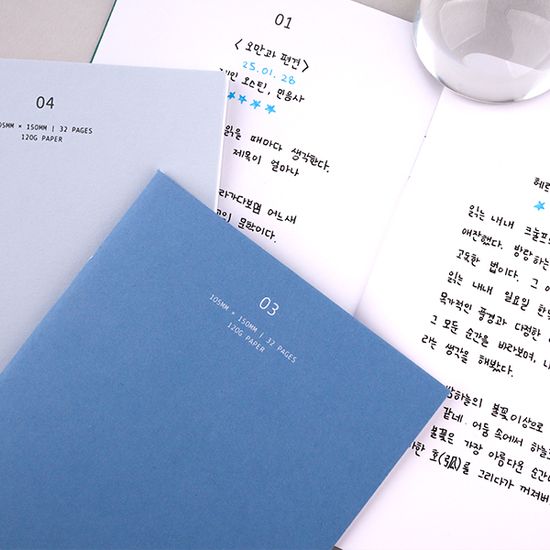 04
105MM × 150MM | 32 PAGES
120G PAPER
03
105MM × 150MM | 32 PAGES
120G PAPER
01
<오만과 편견>
25.01.28
제인 오스틴, 민음사
★★★★
읽을 때마다 생각한다.
제목이 얼마나
따라가다보면 어느새
문학이다.
헤르
★
읽는 내내 크눌프
애잔했다. 방랑하는
고독한 법이다. 그
읽는 내내 일요일 한낮
목가적인 풍경과 다정한
그 모든 순간을 바라보며, 나
라는 생각을 해봤다.
밤하늘의 불꽃이상으로
같네. 어둠 속에서 하늘
불꽃은 가장 아름다운 순간
호(弧)를 그리다가 꺼져버